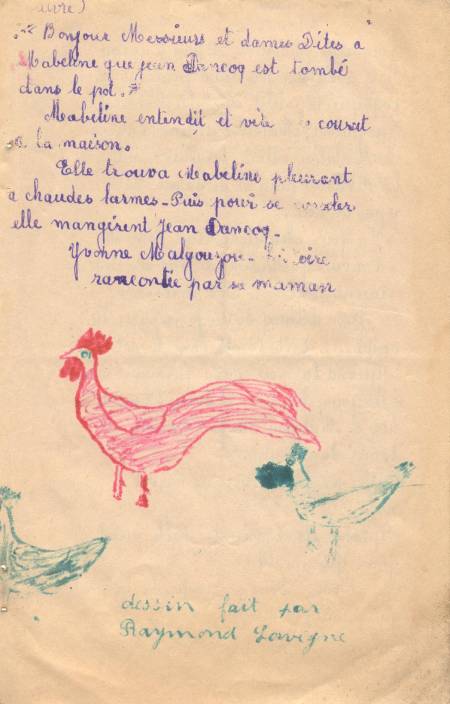 " Bonjour Messieurs et dames Dites a
Mabeline que jean Dancoq est tombé
dans le pot. "
Mabeline entendit et vite courut
a la maison.
Elle trouva Mabeline pleurant
a chaudes larmes - Puis pour se consoler
elle mangèrent Jean Dancoq -
Yvonne Malgouzou - histoire
rancontée par sa maman
dessin fait par
Raymond Lavigne